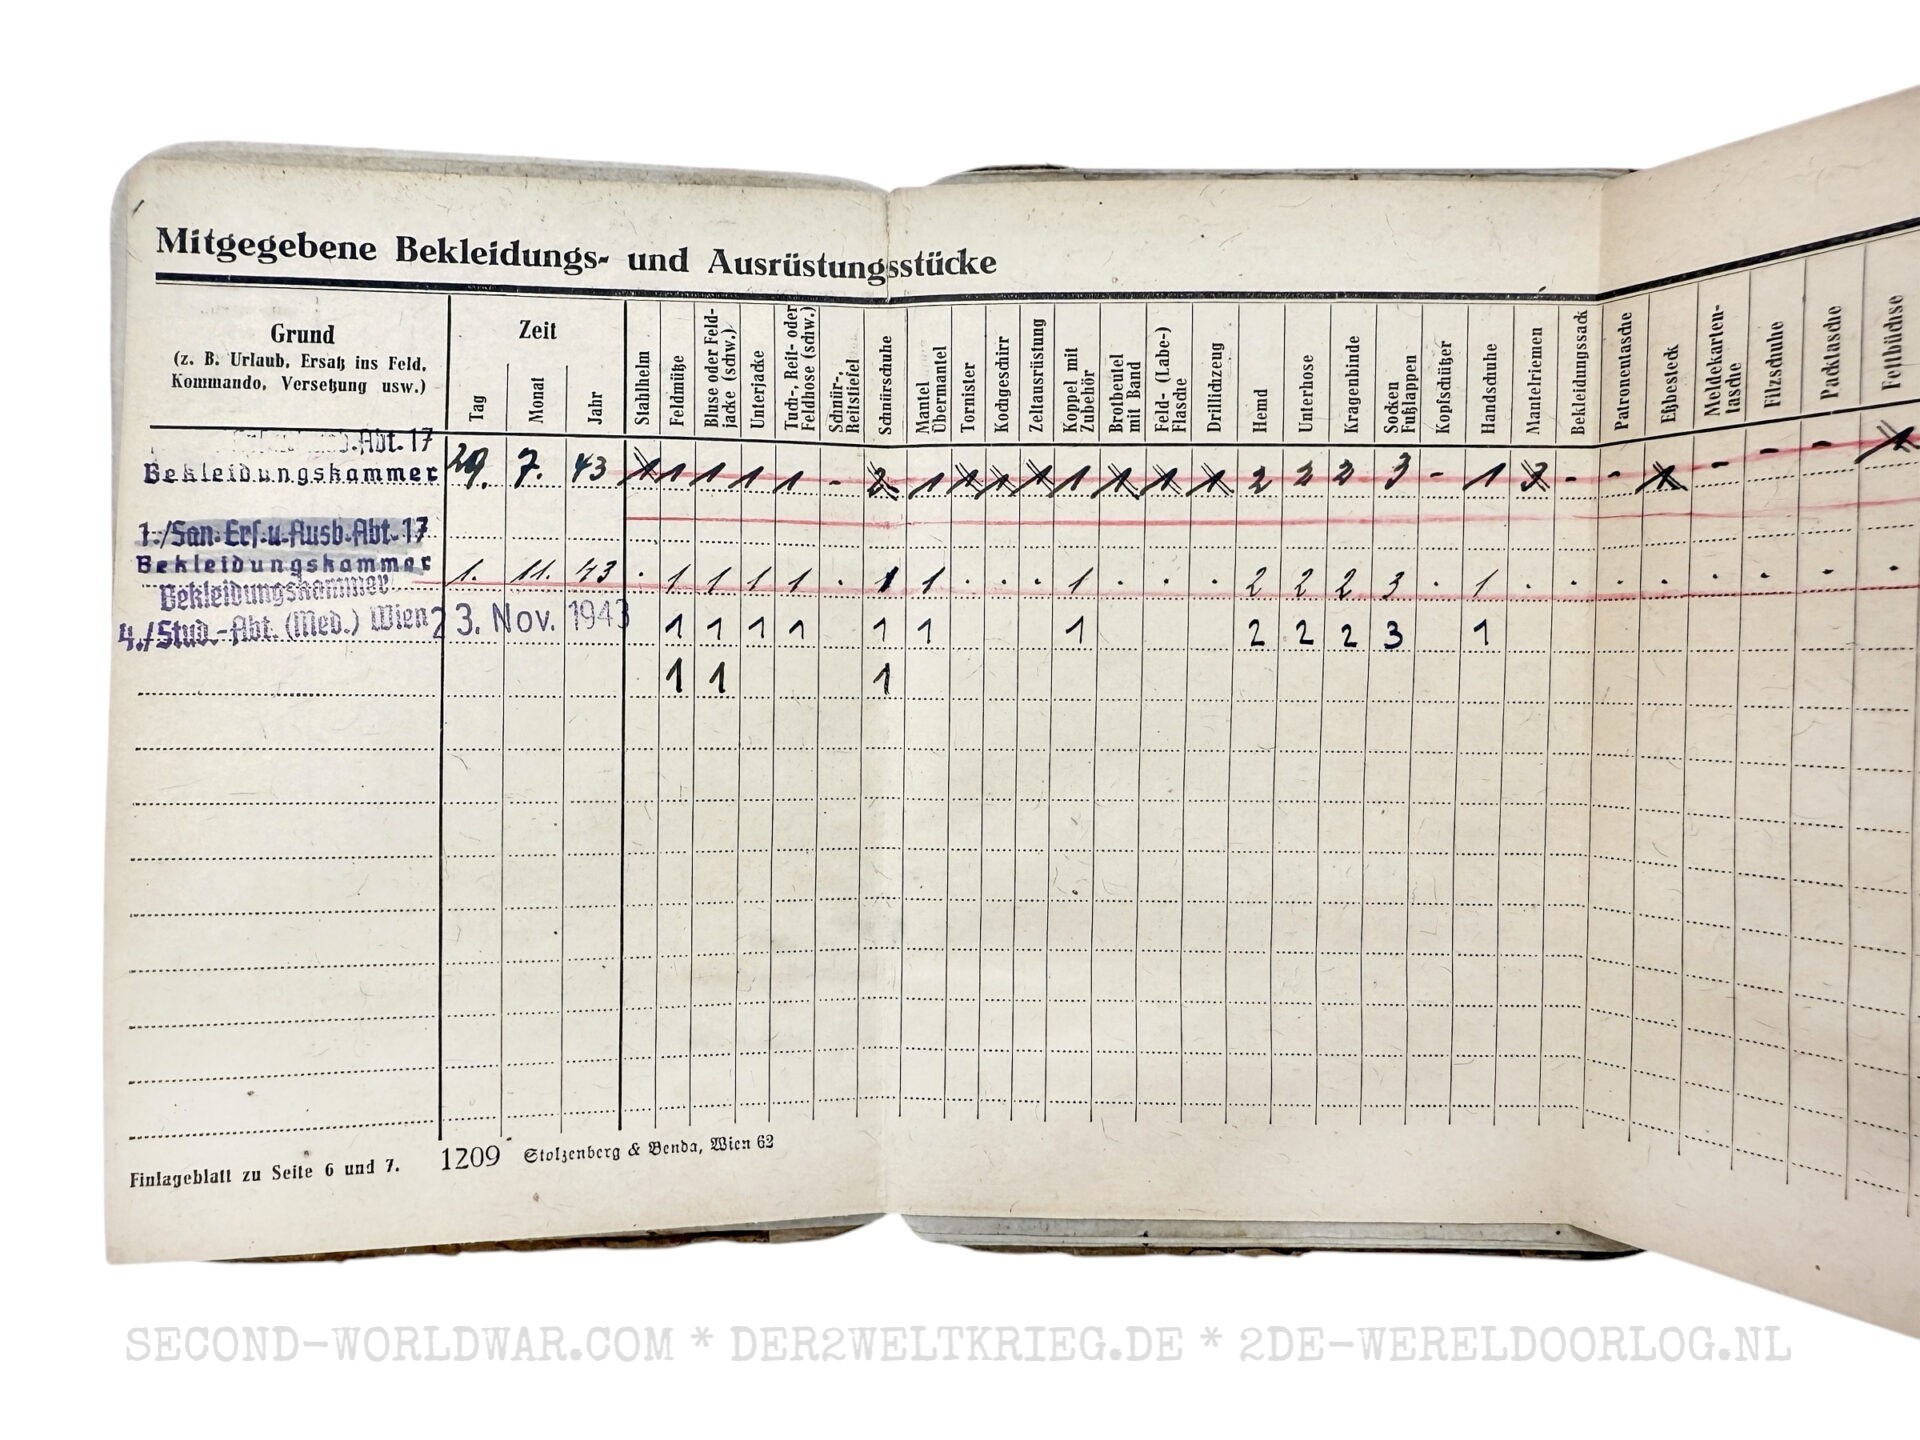 Mitgegebene Bekleidungs- und Ausrüstungsstücke
Grund
(z. B. Urlaub, Ersatz ins Feld,
Kommando, Versetzung usw.)
Zeit
Tag
Monat
Jahr
Stahlhelm
Feldmütze
Bluse oder Feld-
jacke (schw.)
Unterjacke
Tuch-, Reit- oder
Feldhose (schw.)
Schnür-,
Reitstiefel
Schnürschuhe
Mantel
Übermantel
Tornister
Kochgeschirr
Zeltausrüstung
Koppel mit
Zubehör
Brotbeutel
mit Band
Feld- (Labe-)
Flasche
Drillichzeug
Hemd
Unterhose
Kragenbinde
Socken
Fußlappen
Kopfschützer
Handschuhe
Mantelriemen
Bekleidungssack
Patronentasche
Eßbesteck
Meldekarten-
tasche
Filzschuhe
Packtasche
Fettbüchse
Abt. 17
Bekleidungskammer 29. 7. 43 1 1 1 1 1 - 2 1 1 1 1 1 1 1 1 2 2 2 3 - 1 3 - - 1 - - - 1
1./San.Ers.u.Ausb.Abt. 17
Bekleidungskammer 1. 11. 43 . 1 1 1 1 . 1 1 . . . 1 . . . 2 2 2 3 . 1 . . . . . . . .
Bekleidungskammer
4./Stud.-Abt. (Med.) Wien 23. Nov. 1943 1 1 1 1 1 1 1 2 2 2 3 1
1 1 1
Einlageblatt zu Seite 6 und 7. 1209 Stolzenberg & Benda, Wien 62
SECOND-WORLDWAR.COM * DER2WELTKRIEG.DE * 2DE-WERELDOORLOG.NL